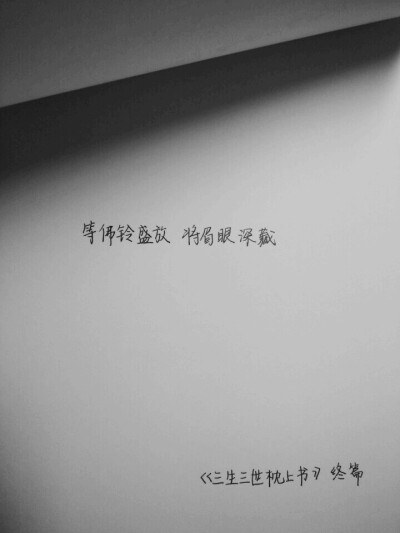 等佛铃盛放 将眉眼深藏
《三生三世枕上书》终篇